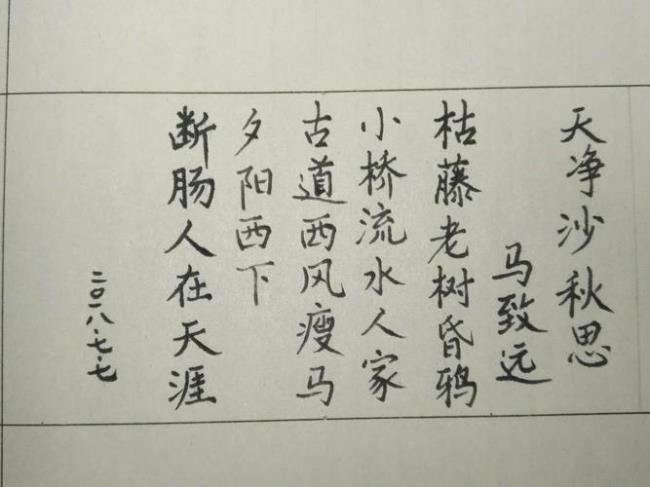 天净沙秋思
马致远
枯藤老树昏鸦
小桥流水人家
古道西风瘦马
夕阳西下
断肠人在天涯
二〇一八.七.七